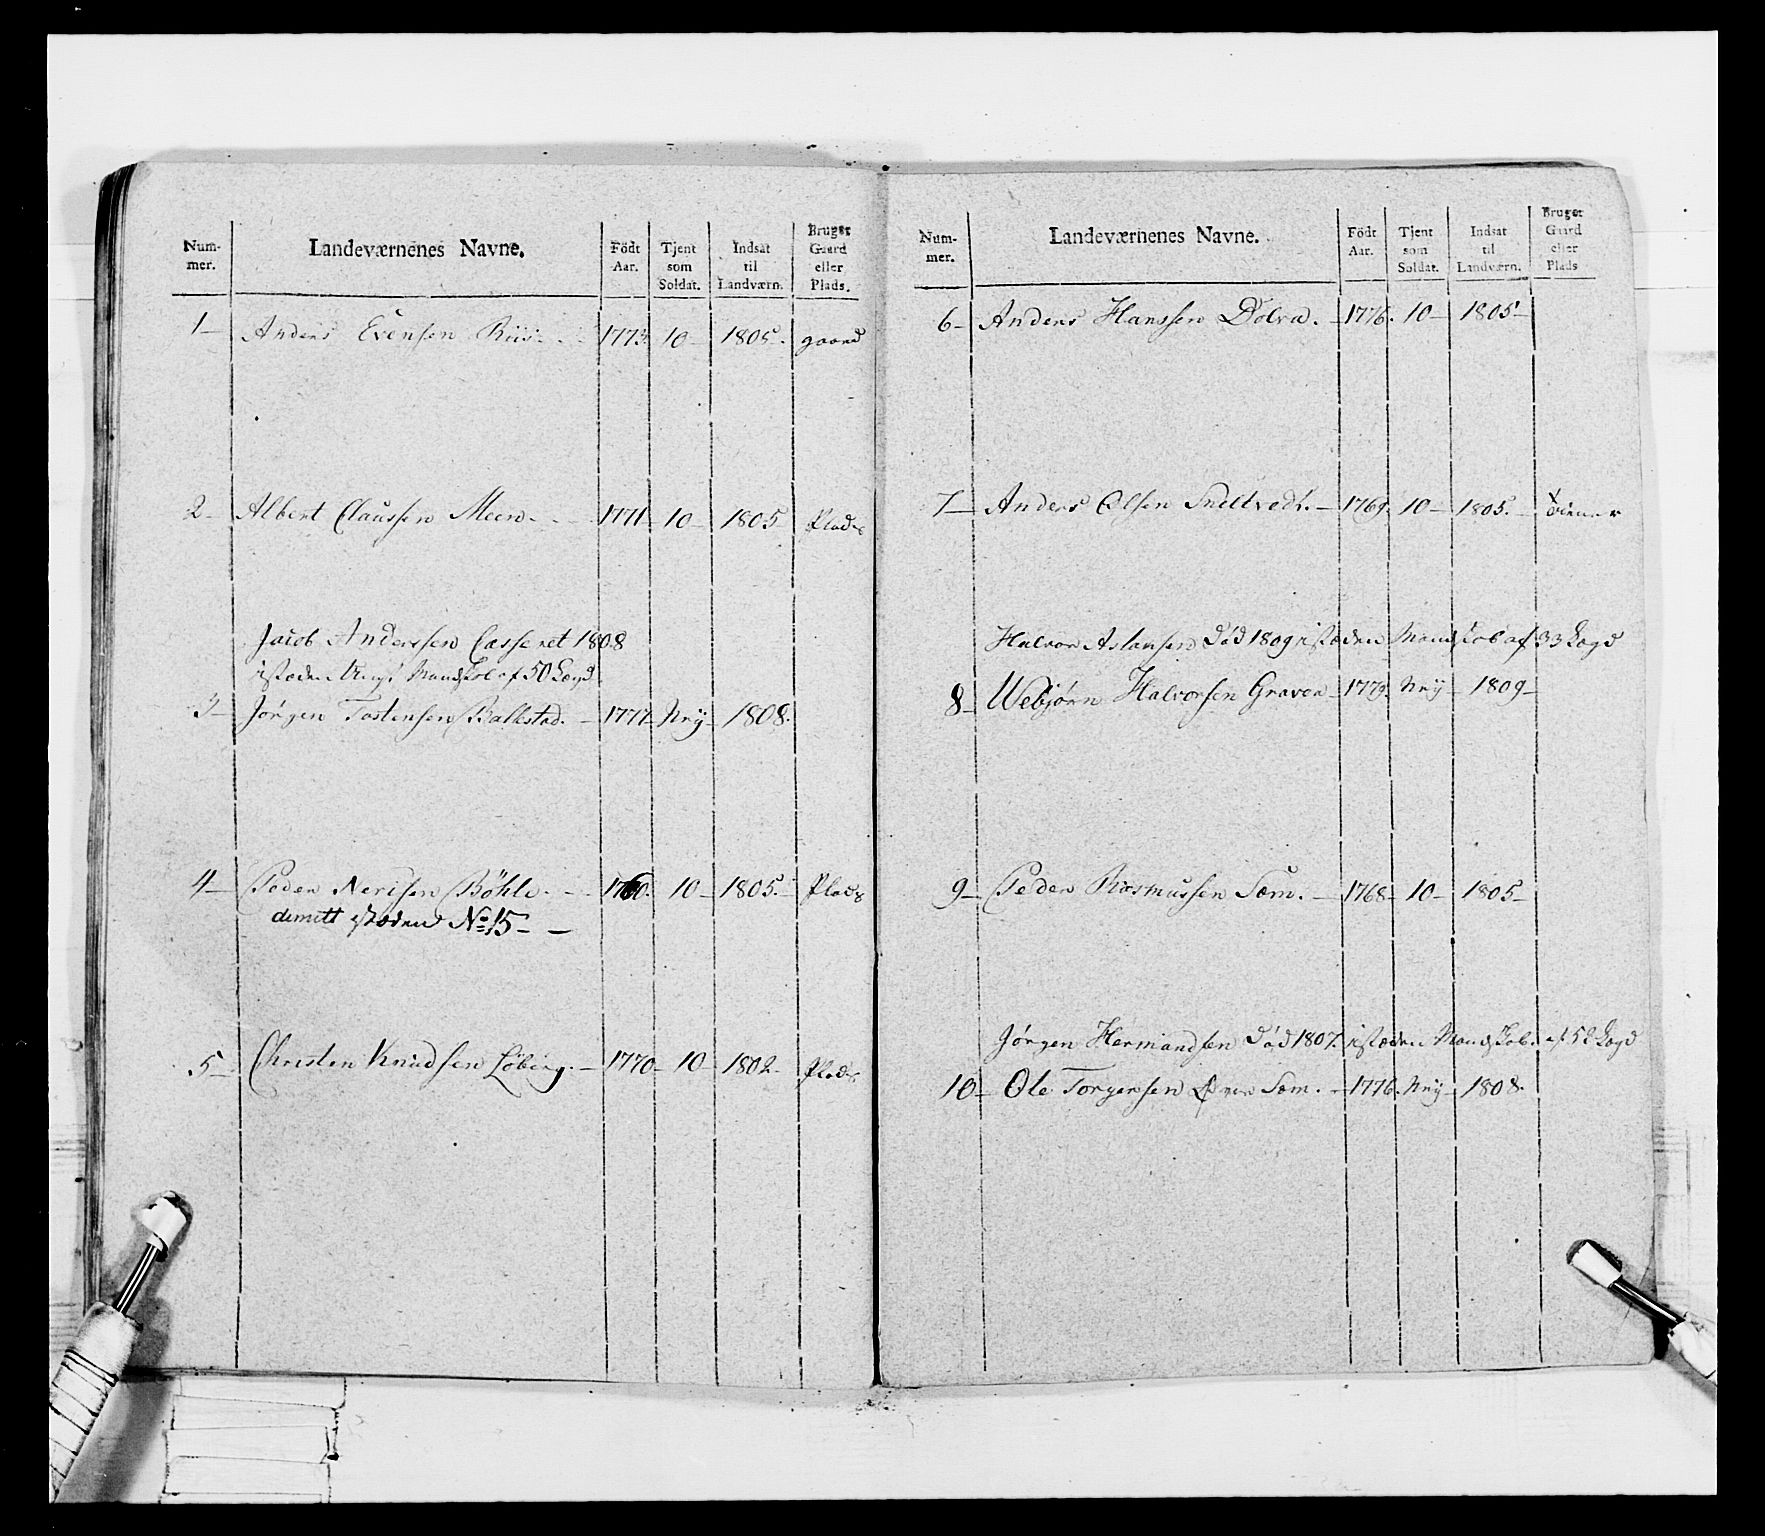 Num-
mer.
Landeværnenes Navne.
Födt
Aar.
Tjent
som
Soldat.
Indsat
til
Landværn.
Bruger
Gaard
eller
Plads.
1- Anders Evensen Riis. - 1773. 10- 1805. gaard
2- Albert Claussen Meen. - 1771- 10- 1805 Plads
Jacob Anderssen Casseret 1808
istæden Mandskob af 50 Lægd
3- Jørgen Tostensen Ballestad. - 1777- Nÿ- 1808.
4- Peder Nerisen Böhle. - 1760. 10- 1805.- Plads
dimitt istæden No 15- -
5- Christen Knudsen Löberg. - 1770- 10- 1802- Plads
Num-
mer.
Landeværnenes Navne.
Födt
Aar.
Tjent
som
Soldat.
Indsat
til
Landværn.
Bruger
Gaard
eller
Plads
6- Anders Hanssen Dolva. - 1776. 10- 1805-
7- Anders Olsen Sneltvedt. - 1769. 10- 1805.-
Halvor Aslansen Död 1809 istæden Mandskob af 33 Lægd
8- Webjörn Halvorsen Graven- 1779. Nÿ- 1809-
9- Peder Rasmussen Sæm. - 1768- 10- 1805-
Jørgen Hermandsen Död 1807. istæden Mandskob. af 52 Lægd
10- Ole Torgersen Øvre Sæm. - 1776. Nÿ- 1808.